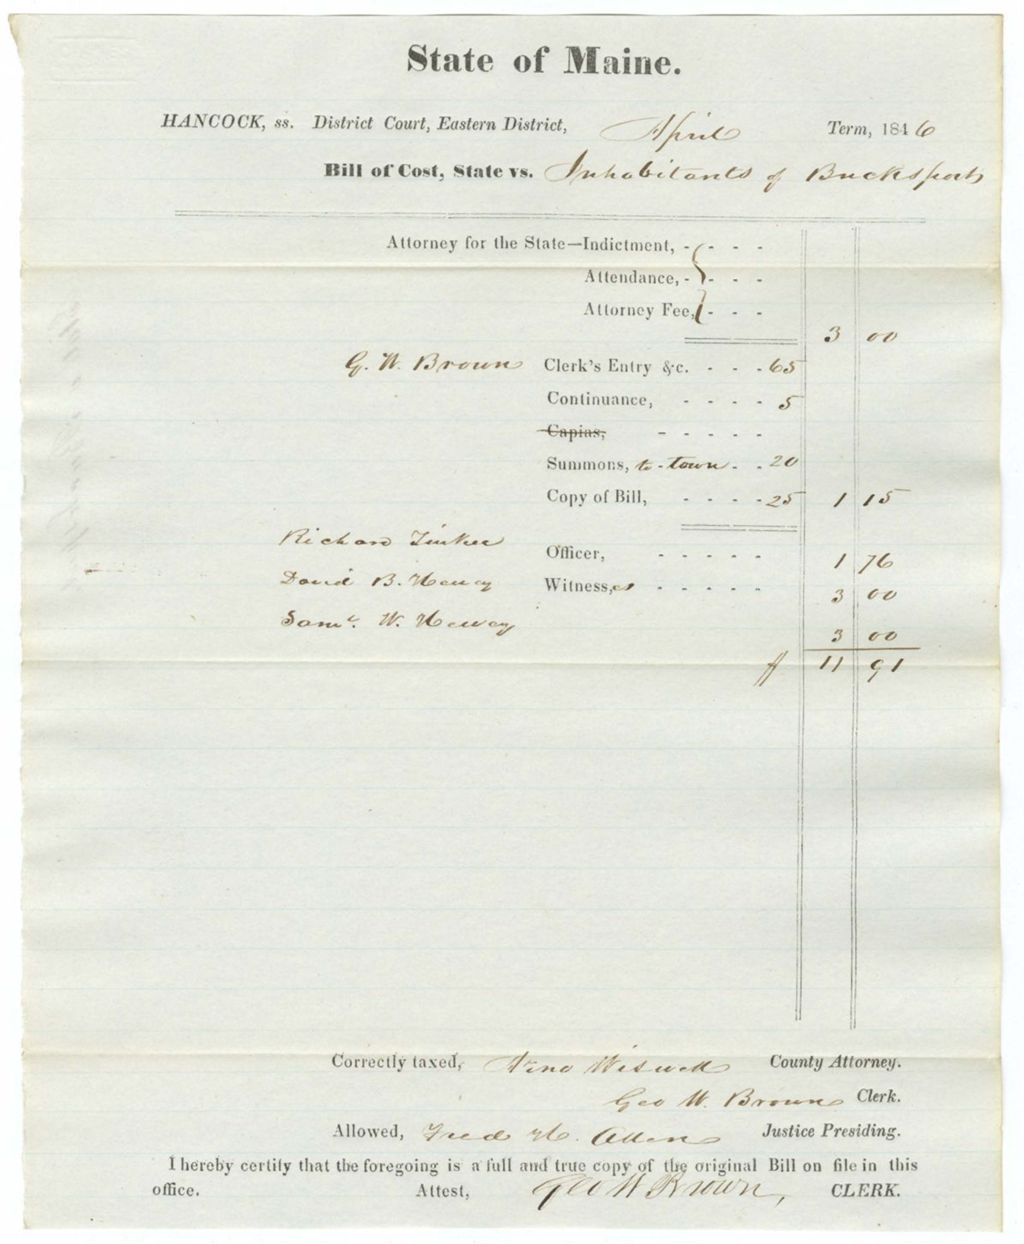 State of Maine.
HANCOCK, ss. District Court, Eastern District, April Term, 1846
Bill of Cost, State vs. Inhabitants of Bucksport
Attorney for the State—Indictment, - - - -
Attendance, - - - -
Attorney Fee, - - -
3 00
G. W. Brown Clerk's Entry &c. - - - 65
Continuance, - - - - 5
Capias, - - - - -
Summons, to town - - 20
Copy of Bill, - - - - 25 1 15
Richard Tinker Officer, - - - - - 1 76
David B. Hewey Witness,es - - - - - 3 00
Saml. W. Hewey 3 00
$ 11 91
Correctly taxed, Arno Wiswell County Attorney.
Geo W. Brown Clerk.
Allowed, Fred H. Allen Justice Presiding.
I hereby certify that the foregoing is a full and true copy of the original Bill on file in this
office. Attest, Geo W Brown, CLERK.